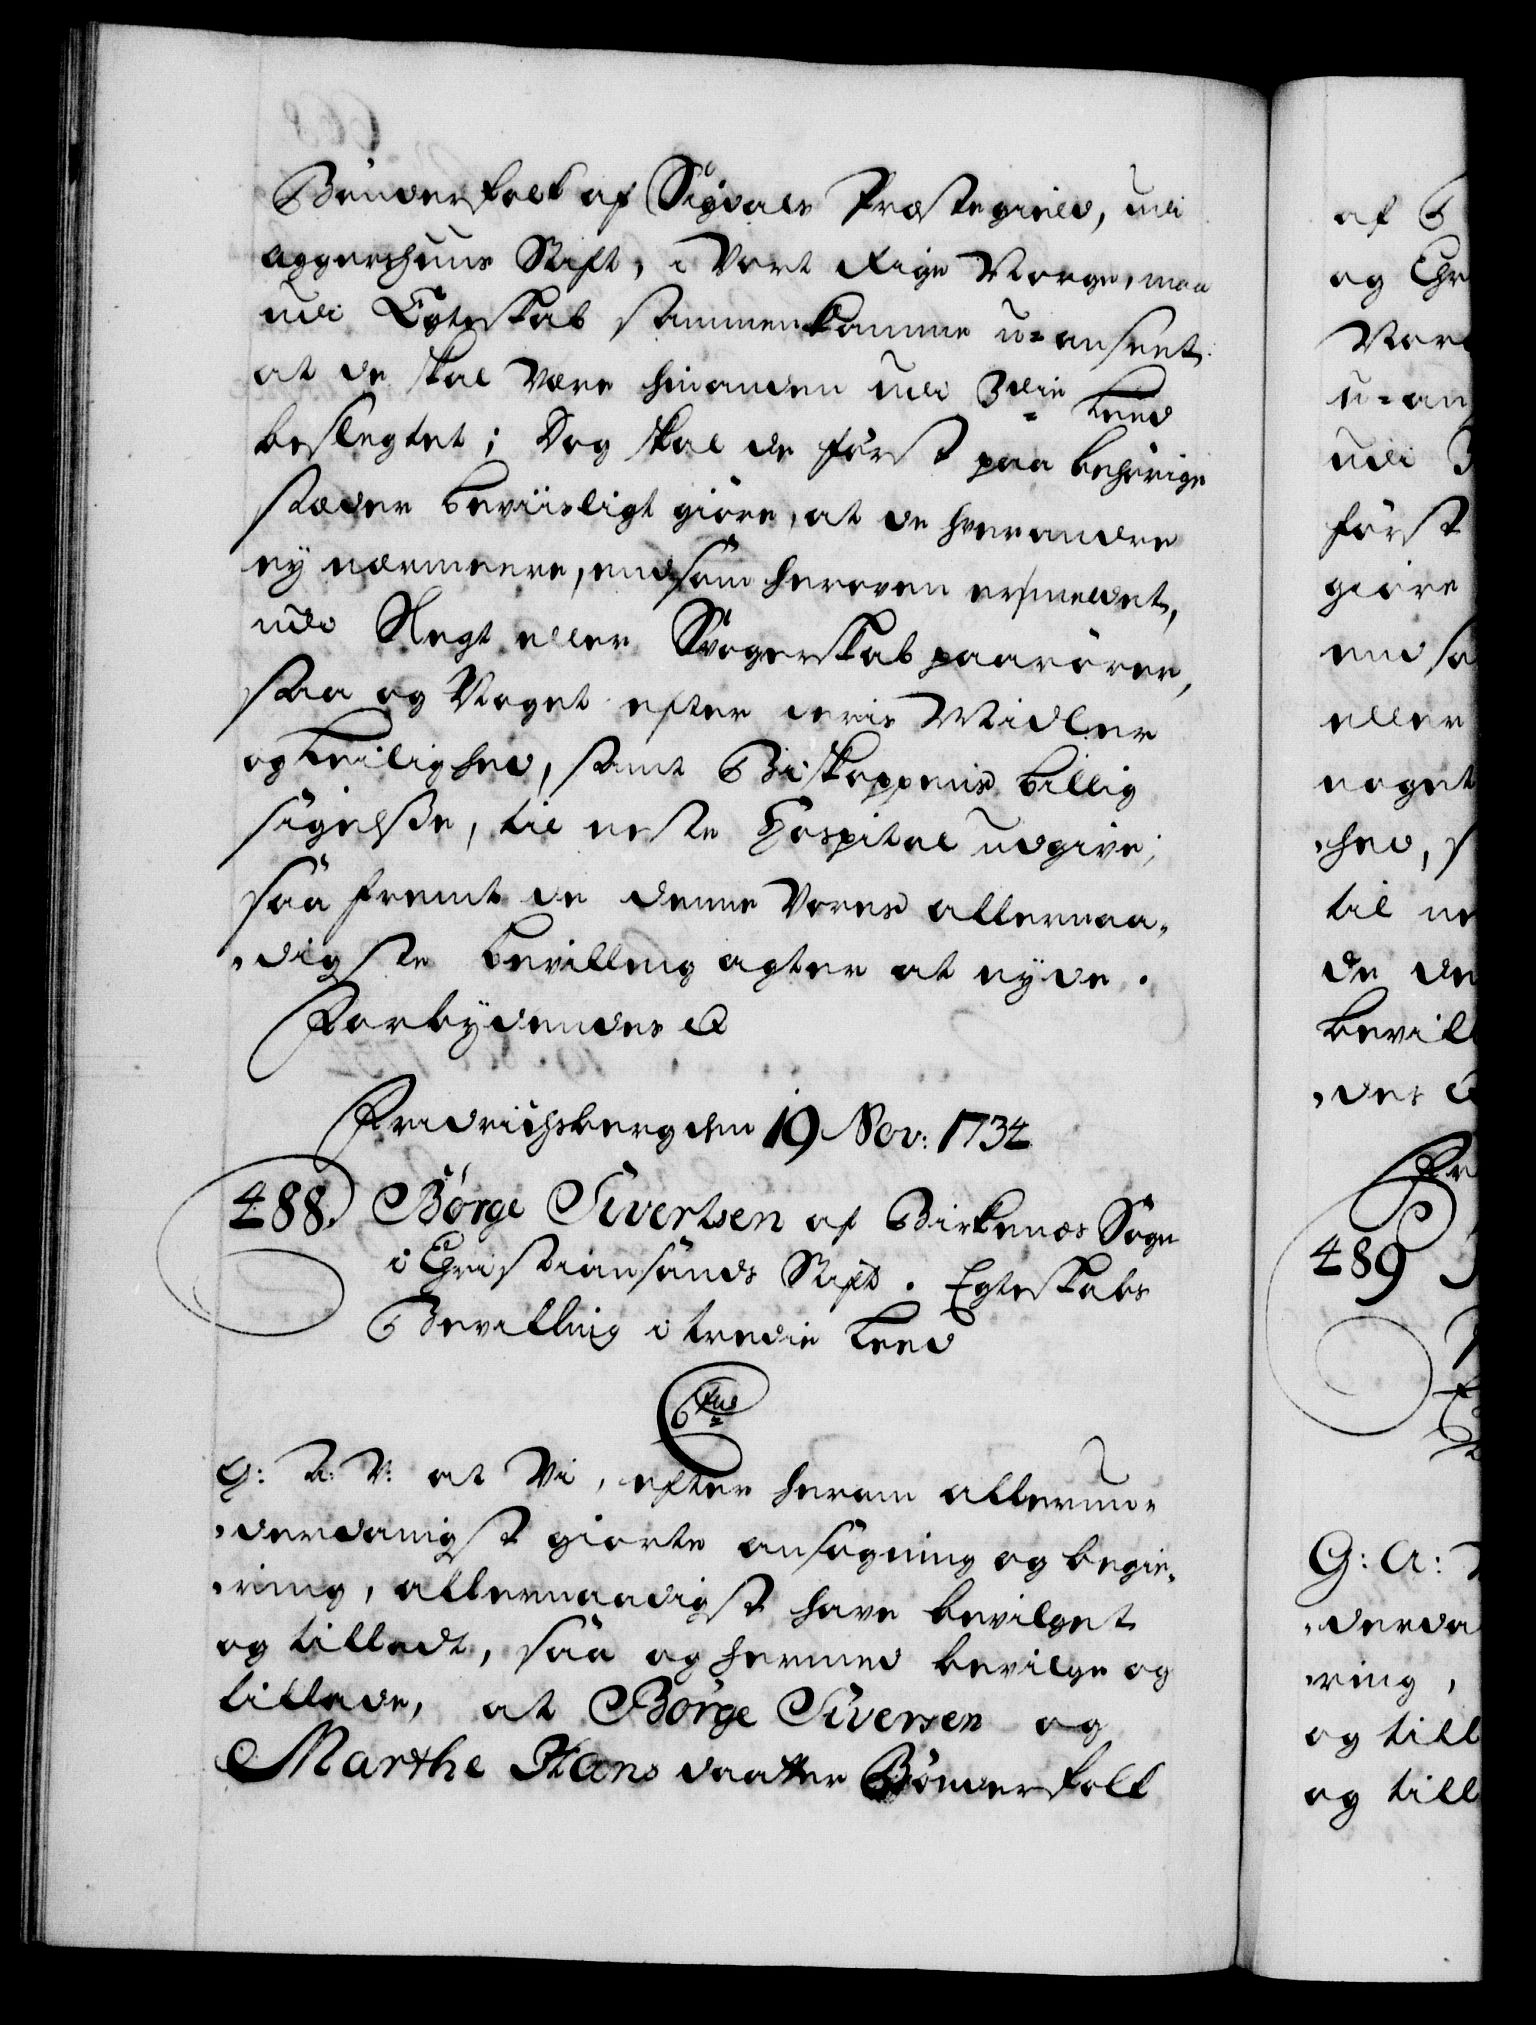 Bønderfolk af Sigdals Præstegield, udi
Aggershuus Stift, i Vort Rige Norge, maa
udi Egteskab sammenkomme u=anseet
at de skal være hinanden udi 3die Leed
beslegtet; Dog skal de først paa behørige
stæder beviisligt giøre, at de hverandre
ey nærmeere, end som heroven ermeldet,
udi Slegt eller Svogerskab paarører,
saa og Noget efter deris Midler
og Leilighed, samt Biskoppens billig
sigelse, til neste Hospital udgive;
saa fremt de denne Vores allernaa-
digste bevilling agter at nyde.
Forbydendes &
Fridrichsberg den 19 Nov: 1734
488. Børge Sivertsen af Birkenæs Sogn
i Christiansands Stift. Egteskabs
Bevilling i tredie Leed
G: A: V: at Vi, efter herom allerun-
derdanigst giorte ansøgning og begie-
ring, allernaadigst have bevilget
og tilladt, saa og hermed bevilge og
tillade, at Børge Siversen og
Marthe Hans daatter Bønderfolk
af
og Chr
Nor
u=an
udi 3
først
giøre
end so
eller
noget
hed, s
til ne
de de
bevill
des &
Fr
489
G: A:
derda
ring,
og till
og till